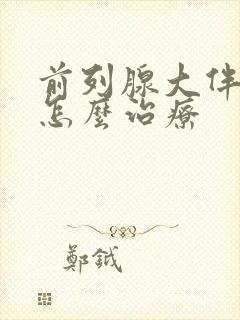 前列腺大伴
怎麼治療
鄭鉞